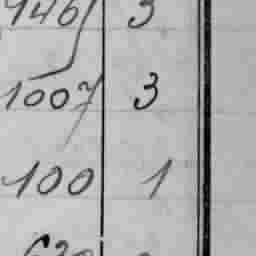 946 3
1007 3
100 1